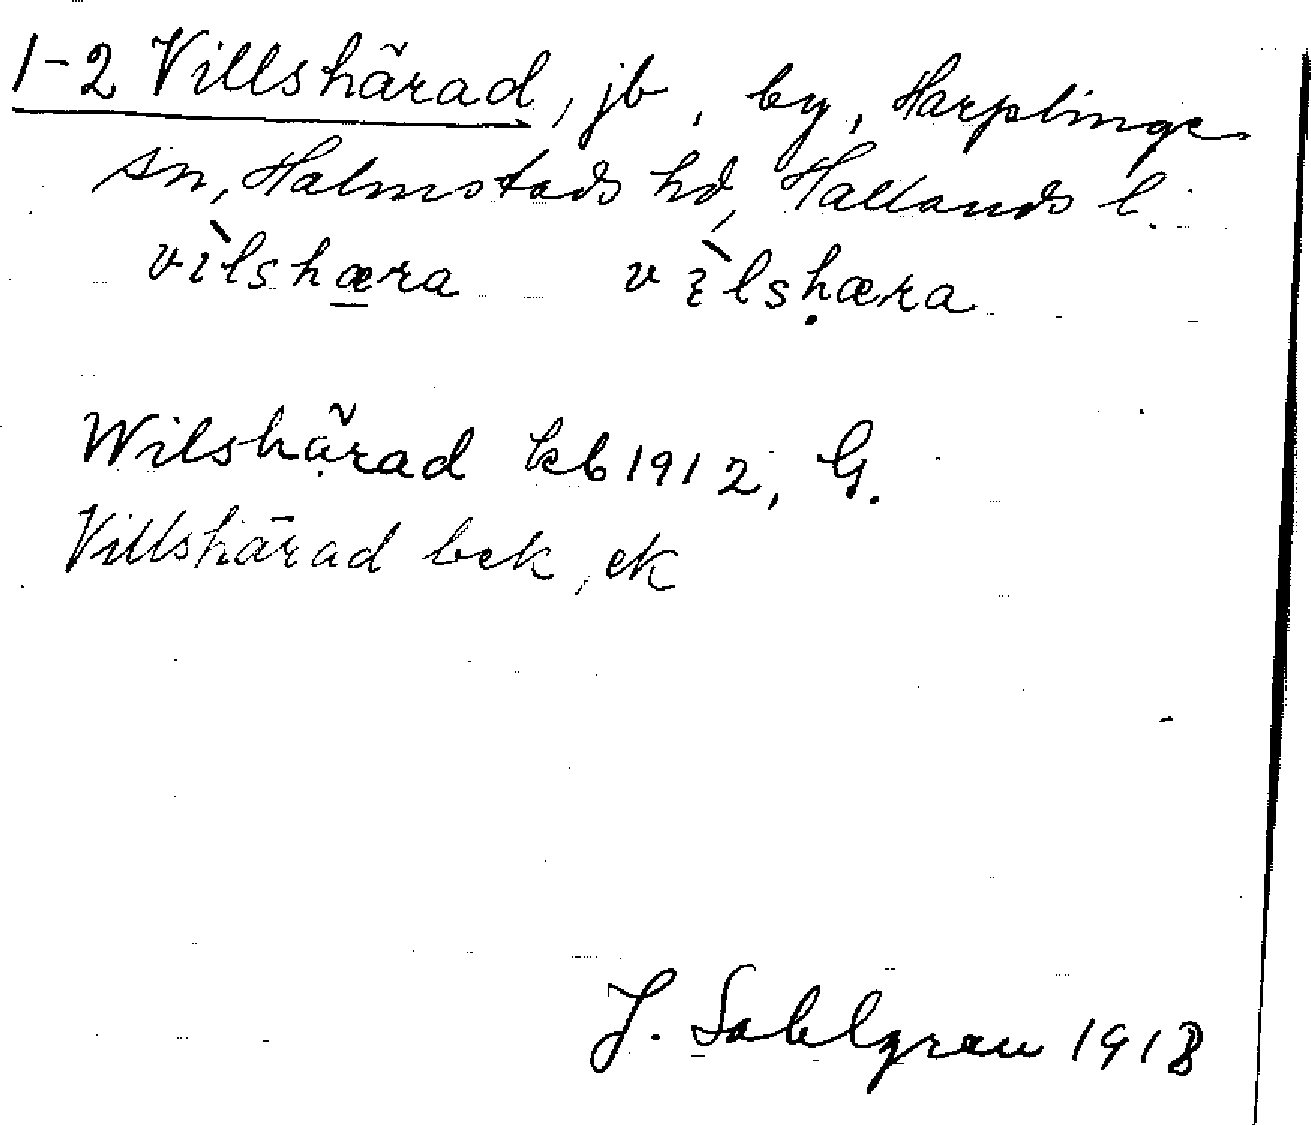 1-2 Villshärad, jb, by, Harplinge
sn, Halmstads hd, Hallands l.
vìlshæra vìlsḥæra
Wilshärad kb 1912, G.
Villshärad bek, ek
J. Sahlgren 1918